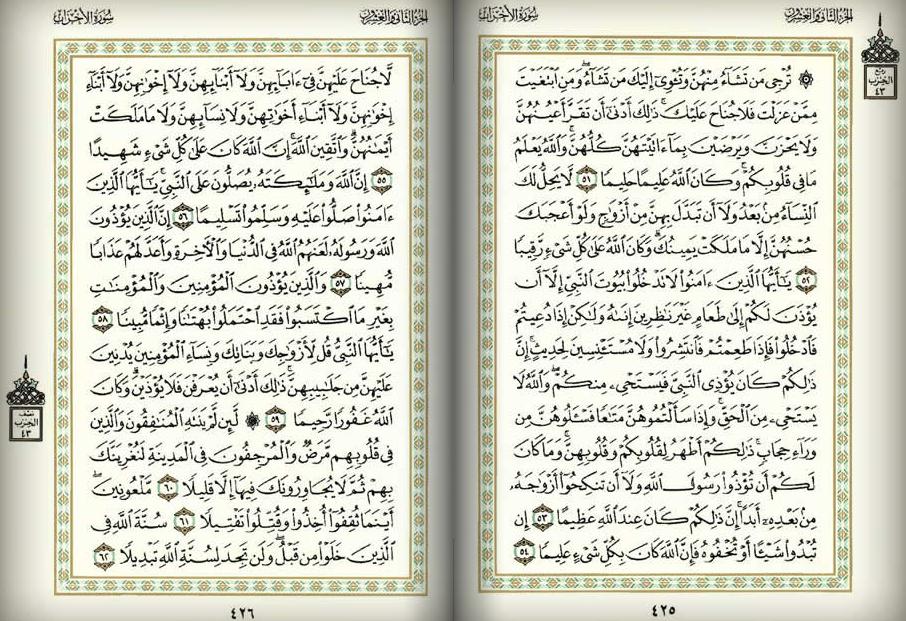 الجزء الثاني والعشرون
سورة الأحزاب
ربع الحزب ٤٣
۞ تُرْجِى مَن تَشَآءُ مِنْهُنَّ وَتُـْٔوِىٓ إِلَيْكَ مَن تَشَآءُ ۖ وَمَنِ ٱبْتَغَيْتَ
مِمَّنْ عَزَلْتَ فَلَا جُنَاحَ عَلَيْكَ ۚ ذَٰلِكَ أَدْنَىٰٓ أَن تَقَرَّ أَعْيُنُهُنَّ
وَلَا يَحْزَنَّ وَيَرْضَيْنَ بِمَآ ءَاتَيْتَهُنَّ كُلُّهُنَّ ۚ وَٱللَّهُ يَعْلَمُ
مَا فِى قُلُوبِكُمْ ۚ وَكَانَ ٱللَّهُ عَلِيمًا حَلِيمًا ٥١ لَّا يَحِلُّ لَكَ
ٱلنِّسَآءُ مِنۢ بَعْدُ وَلَآ أَن تَبَدَّلَ بِهِنَّ مِنْ أَزْوَٰجٍ وَلَوْ أَعْجَبَكَ
حُسْنُهُنَّ إِلَّا مَا مَلَكَتْ يَمِينُكَ ۗ وَكَانَ ٱللَّهُ عَلَىٰ كُلِّ شَىْءٍ رَّقِيبًا
٥٢ يَـٰٓأَيُّهَا ٱلَّذِينَ ءَامَنُوا۟ لَا تَدْخُلُوا۟ بُيُوتَ ٱلنَّبِىِّ إِلَّآ أَن
يُؤْذَنَ لَكُمْ إِلَىٰ طَعَامٍ غَيْرَ نَـٰظِرِينَ إِنَىٰهُ وَلَـٰكِنْ إِذَا دُعِيتُمْ
فَٱدْخُلُوا۟ فَإِذَا طَعِمْتُمْ فَٱنتَشِرُوا۟ وَلَا مُسْتَـْٔنِسِينَ لِحَدِيثٍ ۚ إِنَّ
ذَٰلِكُمْ كَانَ يُؤْذِى ٱلنَّبِىَّ فَيَسْتَحْىِۦ مِنكُمْ ۖ وَٱللَّهُ لَا
يَسْتَحْىِۦ مِنَ ٱلْحَقِّ ۚ وَإِذَا سَأَلْتُمُوهُنَّ مَتَـٰعًا فَسْـَٔلُوهُنَّ مِن
وَرَآءِ حِجَابٍ ۚ ذَٰلِكُمْ أَطْهَرُ لِقُلُوبِكُمْ وَقُلُوبِهِنَّ ۚ وَمَا كَانَ
لَكُمْ أَن تُؤْذُوا۟ رَسُولَ ٱللَّهِ وَلَآ أَن تَنكِحُوٓا۟ أَزْوَٰجَهُۥ
مِنۢ بَعْدِهِۦٓ أَبَدًا ۚ إِنَّ ذَٰلِكُمْ كَانَ عِندَ ٱللَّهِ عَظِيمًا ٥٣ إِن
تُبْدُوا۟ شَيْـًٔا أَوْ تُخْفُوهُ فَإِنَّ ٱللَّهَ كَانَ بِكُلِّ شَىْءٍ عَلِيمًا ٥٤
٤٢٥
الجزء الثاني والعشرون
سورة الأحزاب
لَّا جُنَاحَ عَلَيْهِنَّ فِىٓ ءَابَآئِهِنَّ وَلَآ أَبْنَآئِهِنَّ وَلَآ إِخْوَٰنِهِنَّ وَلَآ أَبْنَآءِ
إِخْوَٰنِهِنَّ وَلَآ أَبْنَآءِ أَخَوَٰتِهِنَّ وَلَا نِسَآئِهِنَّ وَلَا مَا مَلَكَتْ
أَيْمَـٰنُهُنَّ ۗ وَٱتَّقِينَ ٱللَّهَ ۚ إِنَّ ٱللَّهَ كَانَ عَلَىٰ كُلِّ شَىْءٍ شَهِيدًا
٥٥ إِنَّ ٱللَّهَ وَمَلَـٰٓئِكَتَهُۥ يُصَلُّونَ عَلَى ٱلنَّبِىِّ ۚ يَـٰٓأَيُّهَا ٱلَّذِينَ
ءَامَنُوا۟ صَلُّوا۟ عَلَيْهِ وَسَلِّمُوا۟ تَسْلِيمًا ٥٦ إِنَّ ٱلَّذِينَ يُؤْذُونَ
ٱللَّهَ وَرَسُولَهُۥ لَعَنَهُمُ ٱللَّهُ فِى ٱلدُّنْيَا وَٱلْـَٔاخِرَةِ وَأَعَدَّ لَهُمْ عَذَابًا
مُّهِينًا ٥٧ وَٱلَّذِينَ يُؤْذُونَ ٱلْمُؤْمِنِينَ وَٱلْمُؤْمِنَـٰتِ
بِغَيْرِ مَا ٱكْتَسَبُوا۟ فَقَدِ ٱحْتَمَلُوا۟ بُهْتَـٰنًا وَإِثْمًا مُّبِينًا ٥٨
يَـٰٓأَيُّهَا ٱلنَّبِىُّ قُل لِّأَزْوَٰجِكَ وَبَنَاتِكَ وَنِسَآءِ ٱلْمُؤْمِنِينَ يُدْنِينَ
عَلَيْهِنَّ مِن جَلَـٰبِيبِهِنَّ ۚ ذَٰلِكَ أَدْنَىٰٓ أَن يُعْرَفْنَ فَلَا يُؤْذَيْنَ ۗ وَكَانَ
ٱللَّهُ غَفُورًا رَّحِيمًا ٥٩ ۞ لَّئِن لَّمْ يَنتَهِ ٱلْمُنَـٰفِقُونَ وَٱلَّذِينَ
فِى قُلُوبِهِم مَّرَضٌ وَٱلْمُرْجِفُونَ فِى ٱلْمَدِينَةِ لَنُغْرِيَنَّكَ
بِهِمْ ثُمَّ لَا يُجَاوِرُونَكَ فِيهَآ إِلَّا قَلِيلًا ٦٠ مَّلْعُونِينَ ۖ
أَيْنَمَا ثُقِفُوٓا۟ أُخِذُوا۟ وَقُتِّلُوا۟ تَقْتِيلًا ٦١ سُنَّةَ ٱللَّهِ فِى
ٱلَّذِينَ خَلَوْا۟ مِن قَبْلُ ۖ وَلَن تَجِدَ لِسُنَّةِ ٱللَّهِ تَبْدِيلًا ٦٢
نصف الحزب ٤٣
٤٢٦